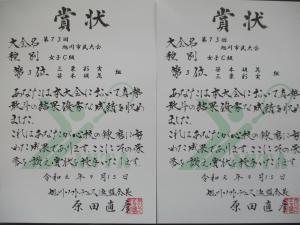 賞状
大会名 第73回
旭川市民大会
種別 女子C級
第3位 三東彩実
笹本硝葉 組
あなたは本大会において真勢
敢斗の結果優秀な成績を収め
ました
これはあなたが心技の錬磨に努
めた成果であります ここにその栄
誉を讃え賞状を授与いたします
令和元年9月15日
旭川ソフトテニス連盟会長
原田直彦
賞状
大会名 第73回
旭川市民大会
種別 女子C級
第3位
組
あなたは本大会において真勢
敢斗の結果優秀な成績を収め
ました
これはあなたが心技の錬磨に努
めた成果であります ここにその栄
誉を讃え賞状を授与いたします
令和元年9月15日
旭川ソフトテニス連盟会長
原田直彦